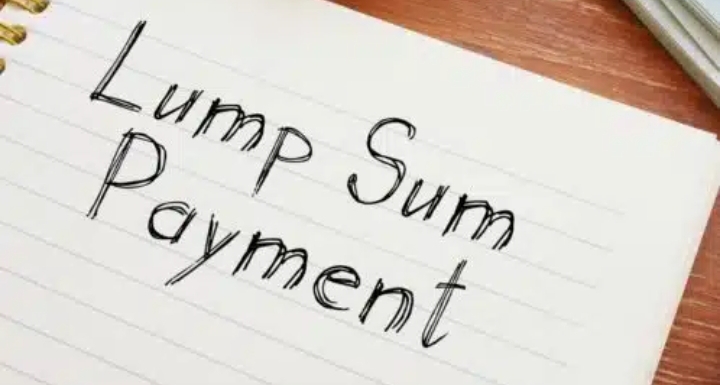 Lump Sum
Payment